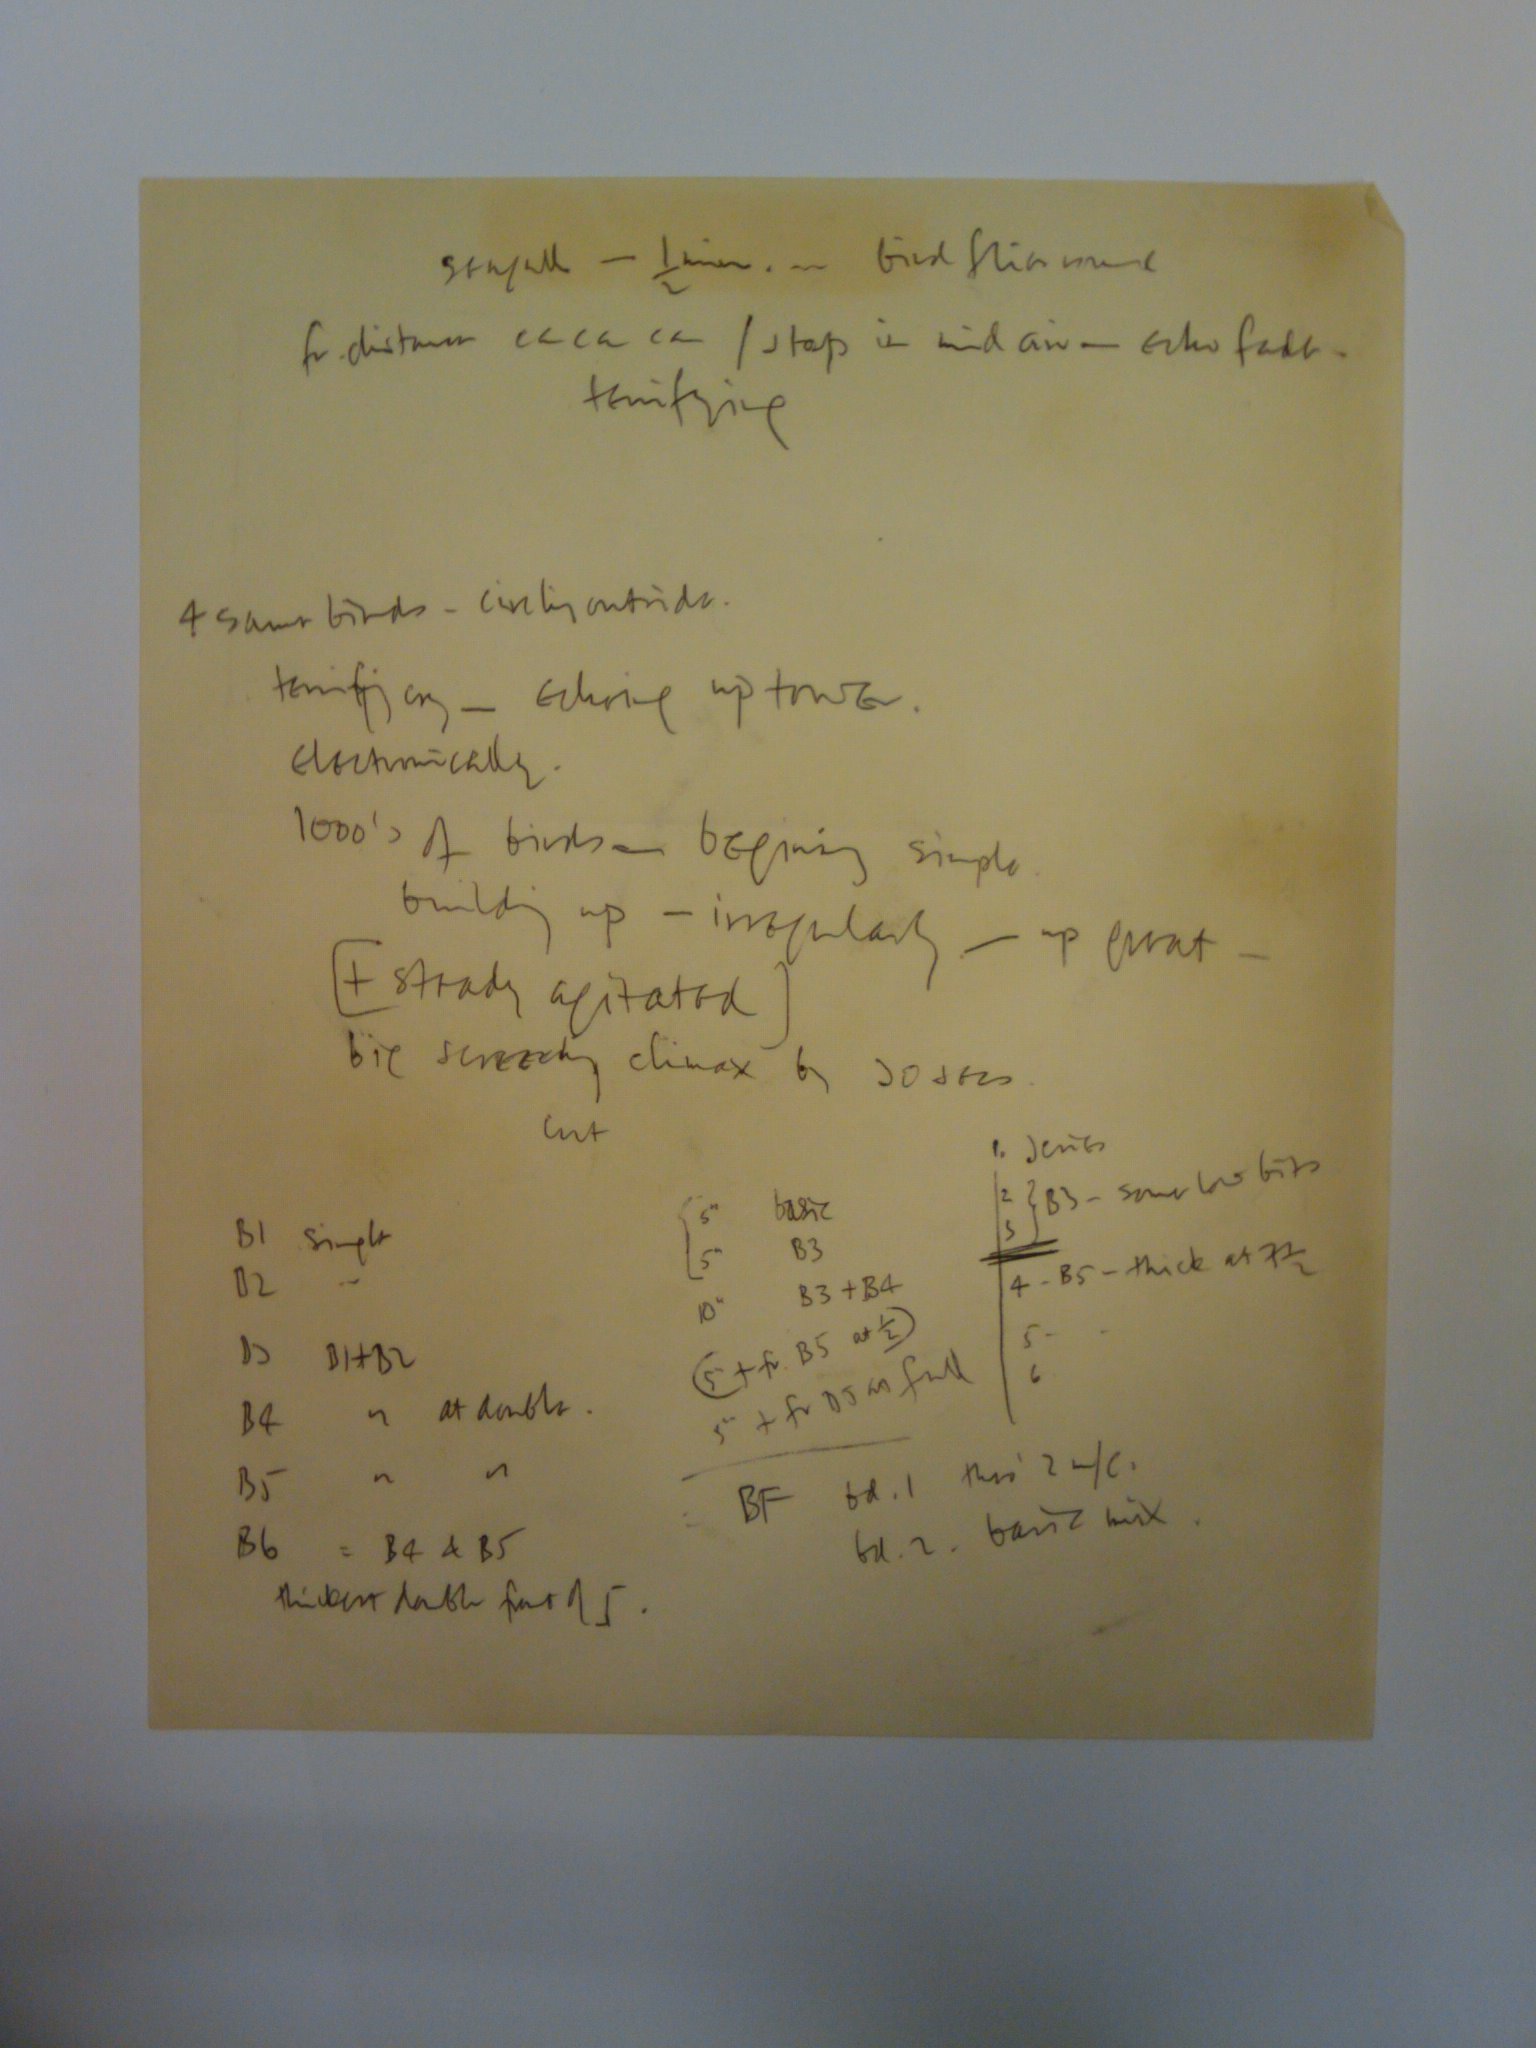 seagull - 1/2 min. - bird flies round
fr. distance ca ca ca / stop in mid air - echo fade.
terrifying
4 same birds - circling outside.
terrifying cry - echoing up tower.
electronically.
1000's of birds - begining simple.
building up - irregularly - up great -
[+ steady agitated]
big screechy climax by 30 secs.
cut
B1 simple
B2 "
B3 B1+B2
B4 " at double.
B5 " "
B6 = B4 & B5
thickest double part of 5.
5" basic
5" B3
10" B3 + B4
5" + fr. B5 at 1/2
5" + fr B5 as full
= BF bd. 1 thro' 2 m/c.
bd. 2. basic mix.
1. series
2 } B3 - some low bits
3
4 - B5 - thick at 7 1/2
5 -
6